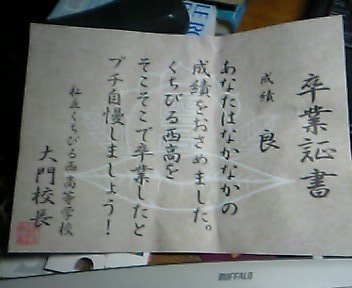 卒業証書
成績 良
あなたはなかなかの
成績をおさめました。
くちびる西高を
そこそこで卒業したと
プチ自慢しましょう！
私立くちびる西高等学校
大門校長
BUFFALO